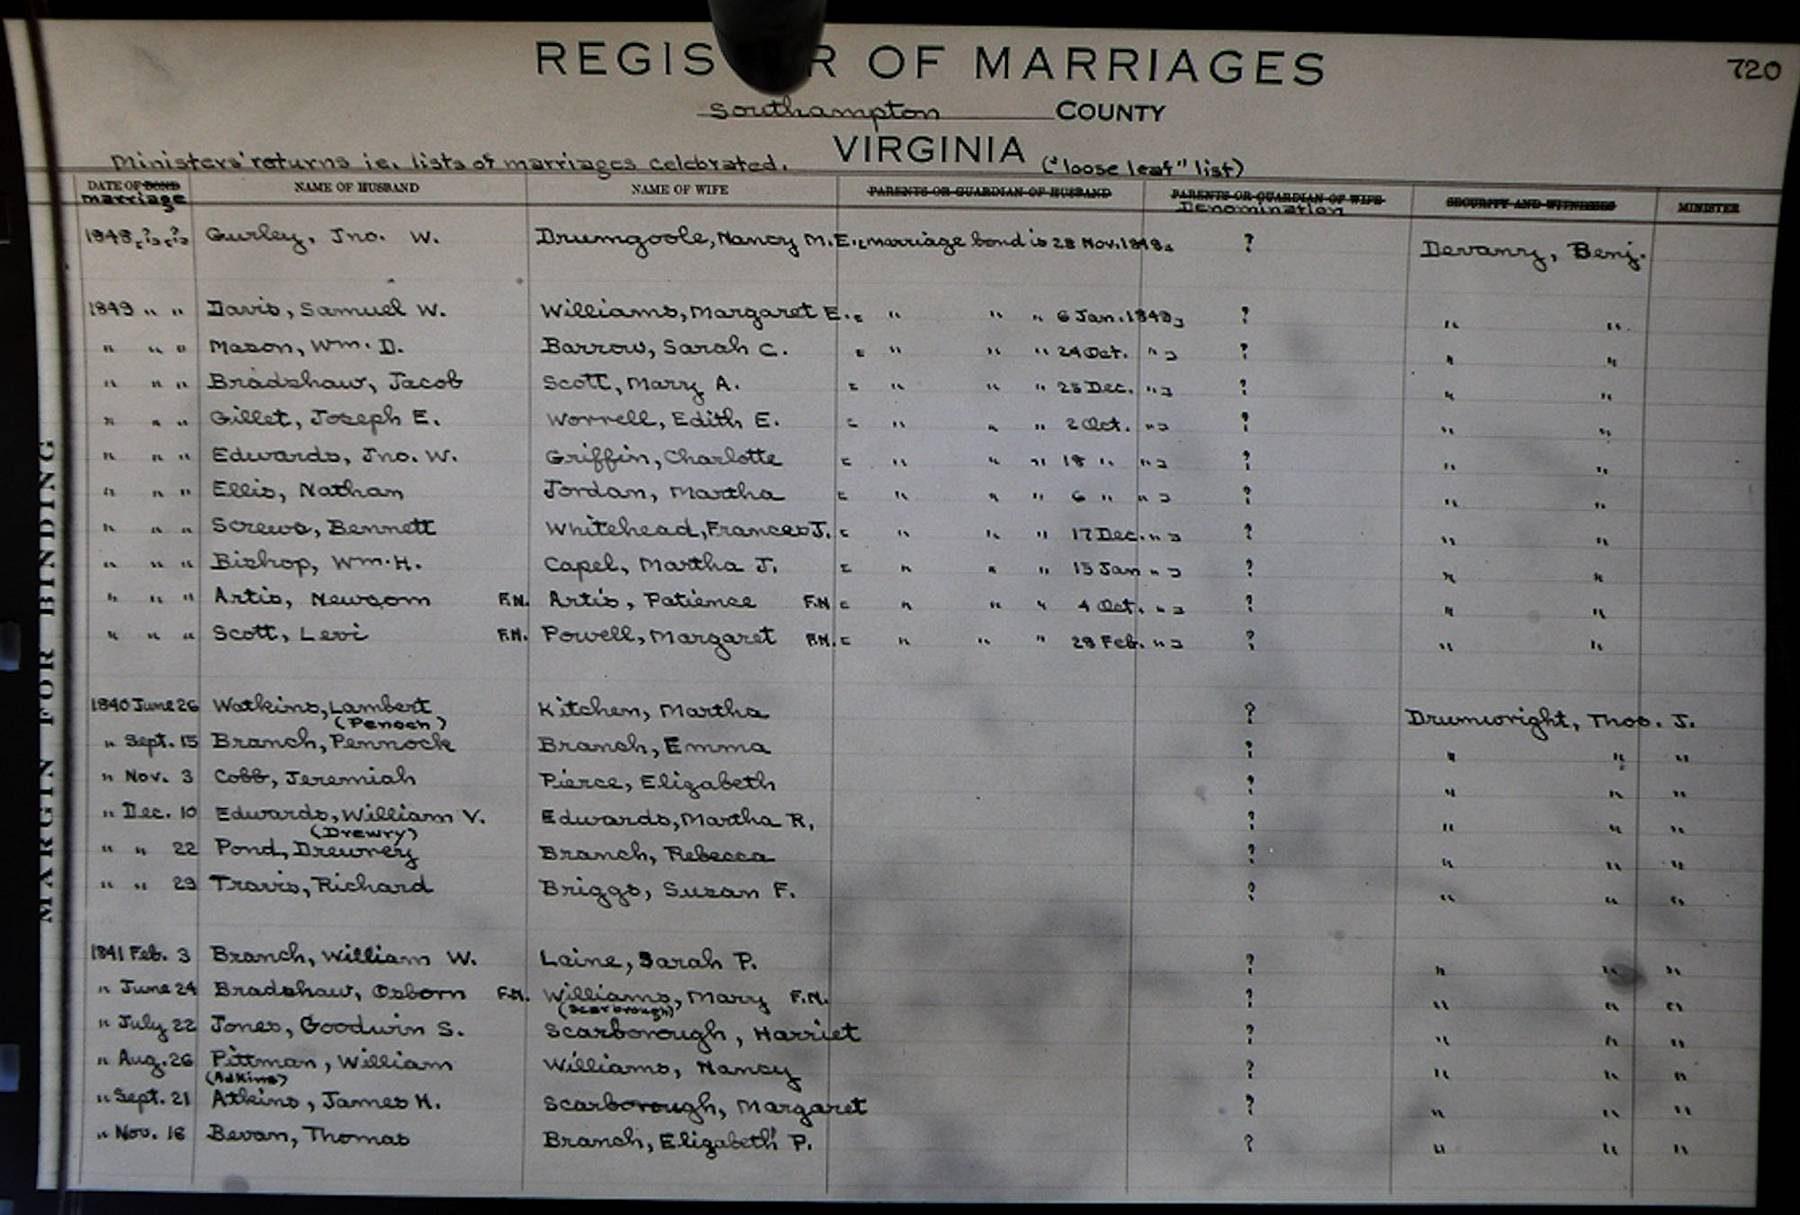 REGIS R OF MARRIAGES 720
Southampton COUNTY
VIRGINIA
Ministers' returns i.e. lists of marriages celebrated. ("loose leaf" list)
DATE OF BOND NAME OF HUSBAND NAME OF WIFE PARENTS OR GUARDIAN OF HUSBAND PARENTS OR GUARDIAN OF WIFE SECURITY AND WITNESSES MINISTER
marriage Denomination
1848, ?, ? Gurley, Jno. W. Drumgoole, Nancy M.E. [marriage bond is 28 Nov. 1848] ? Devanny, Benj.
1849 " " Davis, Samuel W. Williams, Margaret E. [ " " " 6 Jan. 1849] ? " "
" " " Mason, Wm. D. Barrow, Sarah C. [ " " " 24 Oct. " ] ? " "
" " " Bradshaw, Jacob Scott, Mary A. [ " " " 25 Dec. " ] ? " "
" " " Gillet, Joseph E. Worrell, Edith E. [ " " " 2 Oct. " ] ? " "
" " " Edwards, Jno. W. Griffin, Charlotte [ " " " 18 " " ] ? " "
" " " Ellis, Nathan Jordan, Martha [ " " " 6 " " ] ? " "
" " " Screws, Bennett Whitehead, Frances J. [ " " " 17 Dec. " ] ? " "
" " " Bishop, Wm. H. Capel, Martha J. [ " " " 15 Jan " ] ? " "
" " " Artis, Newsom F.N. Artis, Patience F.N. [ " " " 4 Oct. " ] ? " "
" " " Scott, Levi F.N. Powell, Margaret F.N. [ " " " 28 Feb. " ] ? " "
1840 June 26 Watkins, Lambert Kitchen, Martha ? Drumwright, Thos. J.
(Penoch)
" Sept. 15 Branch, Pennock Branch, Emma ? " " "
" Nov. 3 Cobb, Jeremiah Pierce, Elizabeth ? " " "
" Dec. 10 Edwards, William V. Edwards, Martha R. ? " " "
(Drewry)
" " 22 Pond, Drewnery Branch, Rebecca ? " " "
" " 29 Travis, Richard Briggs, Susan F. ? " " "
1841 Feb. 3 Branch, William W. Laine, Sarah P. ? " " "
" June 24 Bradshaw, Osborn F.N. Williams, Mary F.N. ? " " "
(Scarbrough)
" July 22 Jones, Goodwin S. Scarborough, Harriet ? " " "
" Aug. 26 Pittman, William Williams, Nancy ? " " "
(Adkins)
" Sept. 21 Atkins, James H. Scarborough, Margaret ? " " "
" Nov. 16 Bevan, Thomas Branch, Elizabeth P. ? " " "
MARGIN FOR BINDING